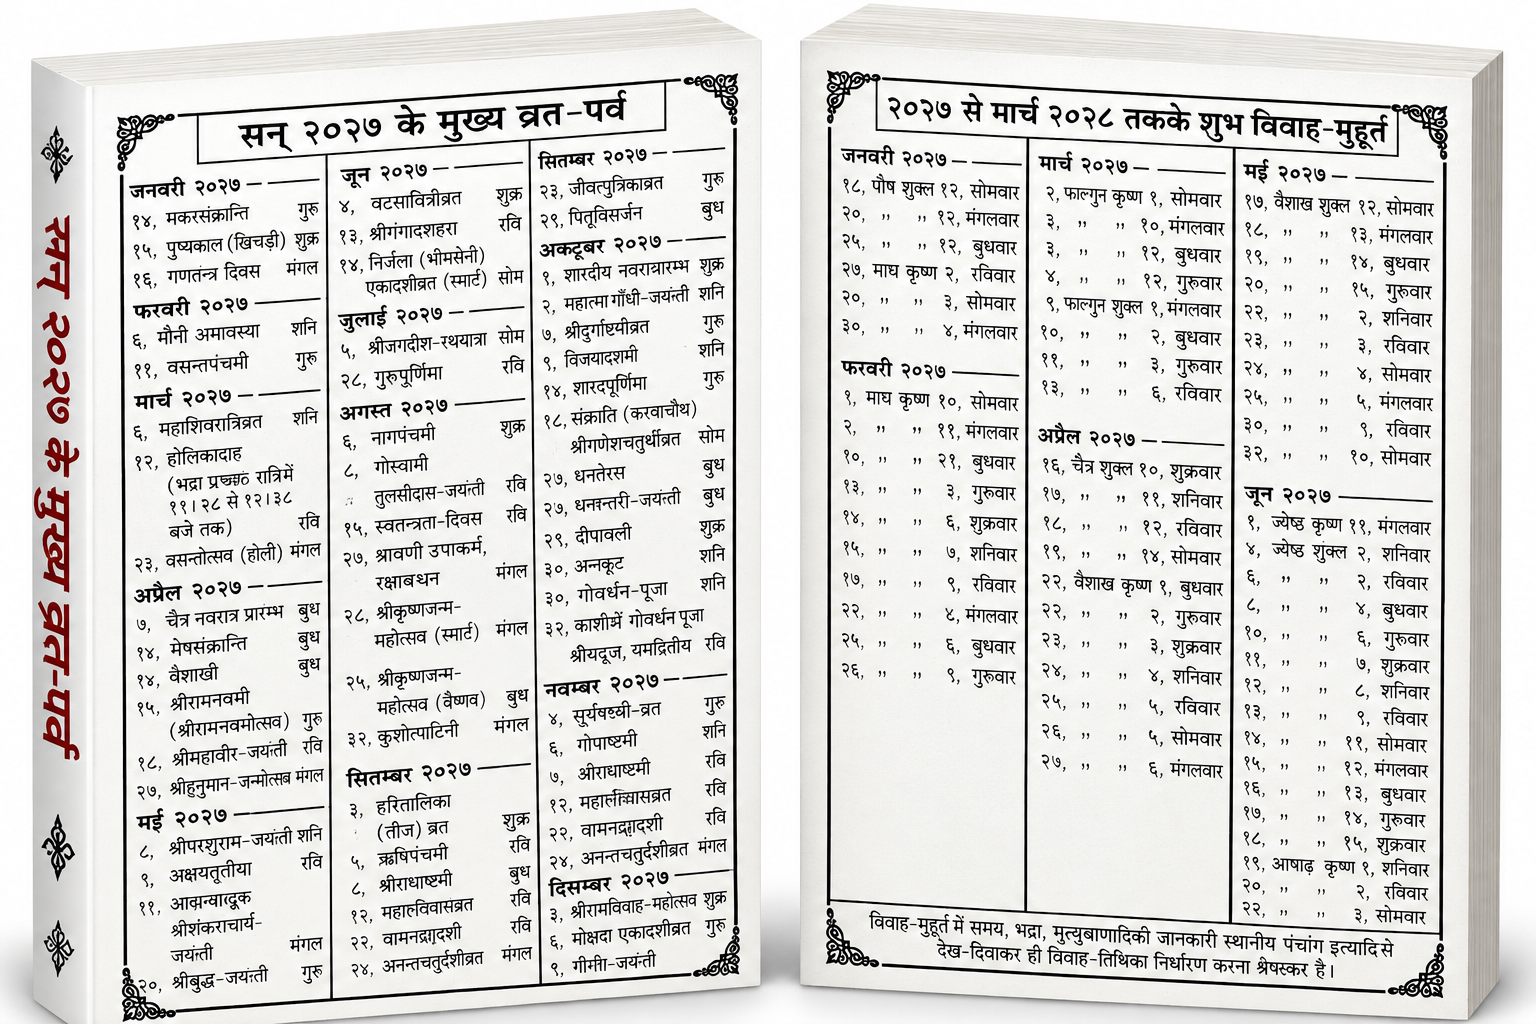 सन् २०२७ के मुख्य व्रत-पर्व
सन् २०२७ के मुख्य व्रत-पर्व
जनवरी २०२७
१४, मकरसंक्रान्ति गुरु
१५, पुष्यकाल (खिचड़ी) शुक्र
१६, गणतन्त्र दिवस मंगल
फरवरी २०२७
६, मौनी अमावस्या शनि
११, वसन्तपंचमी गुरु
मार्च २०२७
६, महाशिवरात्रिव्रत शनि
१२, होलिकादाह
(भद्रा रात्रिमें
११।२८ से १२।३८
बजे तक) रवि
२३, वसन्तोत्सव (होली) मंगल
अप्रैल २०२७
७, चैत्र नवरात्र प्रारम्भ बुध
१४, मेषसंक्रान्ति बुध
१४, वैशाखी बुध
१५, श्रीरामनवमी
(श्रीरामनवमोत्सव) गुरु
१८, श्रीमहावीर-जयंती रवि
२७, श्रीहुनुमान-जन्मोत्सब मंगल
मई २०२७
८, श्रीपरशुराम-जयंती शनि
९, अक्षयतृतीया रवि
११,
श्रीशंकराचार्य-
जयंती मंगल
२०, श्रीबुद्ध-जयंती गुरु
जून २०२७
४, वटसावित्रीव्रत शुक्र
१३, श्रीगंगादशहरा रवि
१४, निर्जला (भीमसेनी)
एकादशीव्रत (स्मार्ट) सोम
जुलाई २०२७
५, श्रीजगदीश-रथयात्रा सोम
२८, गुरुपूर्णिमा रवि
अगस्त २०२७
६, नागपंचमी शुक्र
८, गोस्वामी
तुलसीदास-जयंती रवि
१५, स्वतन्त्रता-दिवस रवि
२७, श्रावणी उपाकर्म,
रक्षाबथन मंगल
२८, श्रीकृष्णजन्म-
महोत्सव (स्मार्ट) मंगल
२५, श्रीकृष्णजन्म-
महोत्सव (वैष्णव) बुध
३२, कुशोत्पाटिनी मंगल
सितम्बर २०२७
३, हरितालिका
(तीज) व्रत शुक्र
५, ऋषिपंचमी रवि
८, श्रीराधाष्टमी बुध
१२, महालविवासव्रत रवि
२२, वामनद्वादशी रवि
२४, अनन्तचतुर्दशीव्रत मंगल
सितम्बर २०२७
२३, जीवत्पुत्रिकाव्रत गुरु
२९, पितृविसर्जन बुध
अकटूबर २०२७
१, शारदीय नवरात्रारम्भ शुक्र
२, महात्मा गाँधी-जयंती शनि
७, श्रीदुर्गाष्टयीव्रत गुरु
९, विजयादशमी शनि
१४, शारदपूर्णिमा गुरु
१८, संक्राति (करवाचौथ)
श्रीगणेशचतुर्थीव्रत सोम
२७, धनतेरस बुध
२७, धनवन्तरी-जयंती बुध
२९, दीपावली शुक्र
३०, अन्नकूट शनि
३०, गोवर्धन-पूजा शनि
३२, काशीमें गोवर्धन पूजा
श्रीयदूज, यमद्रितीय रवि
नवम्बर २०२७
४, सूर्यषष्ठी-व्रत गुरु
६, गोपाष्टमी शनि
७, श्रीराधाष्टमी रवि
१२, रवि
२२, वामनद्वादशी रवि
२४, अनन्तचतुर्दशीव्रत मंगल
दिसम्बर २०२७
३, श्रीरामविवाह-महोत्सव शुक्र
६, मोक्षदा एकादशीव्रत गुरु
९, गीमी-जयंती
२०२७ से मार्च २०२८ तकके शुभ विवाह-मुहूर्त
जनवरी २०२७
१८, पौष शुक्ल १२, सोमवार
२०, ,, ,, १२, मंगलवार
२५, ,, ,, १२, बुधवार
२७, माघ कृष्ण २, रविवार
२०, ,, ,, ३, सोमवार
३०, ,, ,, ४, मंगलवार
फरवरी २०२७
१, माघ कृष्ण १०, सोमवार
२, ,, ,, ११, मंगलवार
१०, ,, ,, २१, बुधवार
१३, ,, ,, ३, गुरुवार
१४, ,, ,, ६, शुक्रवार
१५, ,, ,, ७, शनिवार
१७, ,, ,, ९, रविवार
२२, ,, ,, ५, मंगलवार
२५, ,, ,, ६, बुधवार
२६, ,, ,, ९, गुरूवार
मार्च २०२७
२, फाल्गुन कृष्ण १, सोमवार
३, ,, ,, १०, मंगलवार
३, ,, ,, १२, बुधवार
४, ,, ,, १२, गुरुवार
९, फाल्गुन शुक्ल १, मंगलवार
१०, ,, ,, २, बुधवार
११, ,, ,, ३, गुरुवार
१३, ,, ,, ६, रविवार
अप्रैल २०२७
१६, चैत्र शुक्ल १०, शुक्रवार
१७, ,, ,, ११, शनिवार
१८, ,, ,, १२, रविवार
१९, ,, ,, १४, सोमवार
२२, वैशाख कृष्ण १, बुधवार
२२, ,, ,, २, गुरुवार
२३, ,, ,, ३, शुक्रवार
२४, ,, ,, ४, शनिवार
२५, ,, ,, ५, रविवार
२६, ,, ,, ५, सोमवार
२७, ,, ,, ६, मंगलवार
मई २०२७
१७, वैशाख शुक्ल १२, सोमवार
१८, ,, ,, १३, मंगलवार
१९, ,, ,, १४, बुधवार
२०, ,, ,, १५, गुरुवार
२२, ,, ,, २, शनिवार
२३, ,, ,, ३, रविवार
२४, ,, ,, ४, सोमवार
२५, ,, ,, ५, मंगलवार
३०, ,, ,, ९, रविवार
३२, ,, ,, १०, सोमवार
जून २०२७
१, ज्येष्ठ कृष्ण ११, मंगलवार
४, ज्येष्ठ शुंक्ल २, शनिवार
६, ,, ,, २, रविवार
८, ,, ,, ४, बुधवार
१०, ,, ,, ६, गुरूवार
११, ,, ,, ७, शुक्रवार
१२, ,, ,, ८, शनिवार
१३, ,, ,, ९, रविवार
१४, ,, ,, ११, सोमवार
१५, ,, ,, १२, मंगलवार
१६, ,, ,, १३, बुधवार
१७, ,, ,, १४, गुरुवार
१८, ,, ,, १५, शुक्रवार
१९, आषाढ़ कृष्ण १, शनिवार
२०, ,, ,, २, रविवार
२२, ,, ,, ३, सोमवार
विवाह-मुहूर्त में समय, भद्रा, मुत्युबाणादिकी जानकारी स्थानीय पंचांग इत्यादि से
देख-दिवाकर ही विवाह-तिथिका निर्धारण करना श्रेषस्कर है।